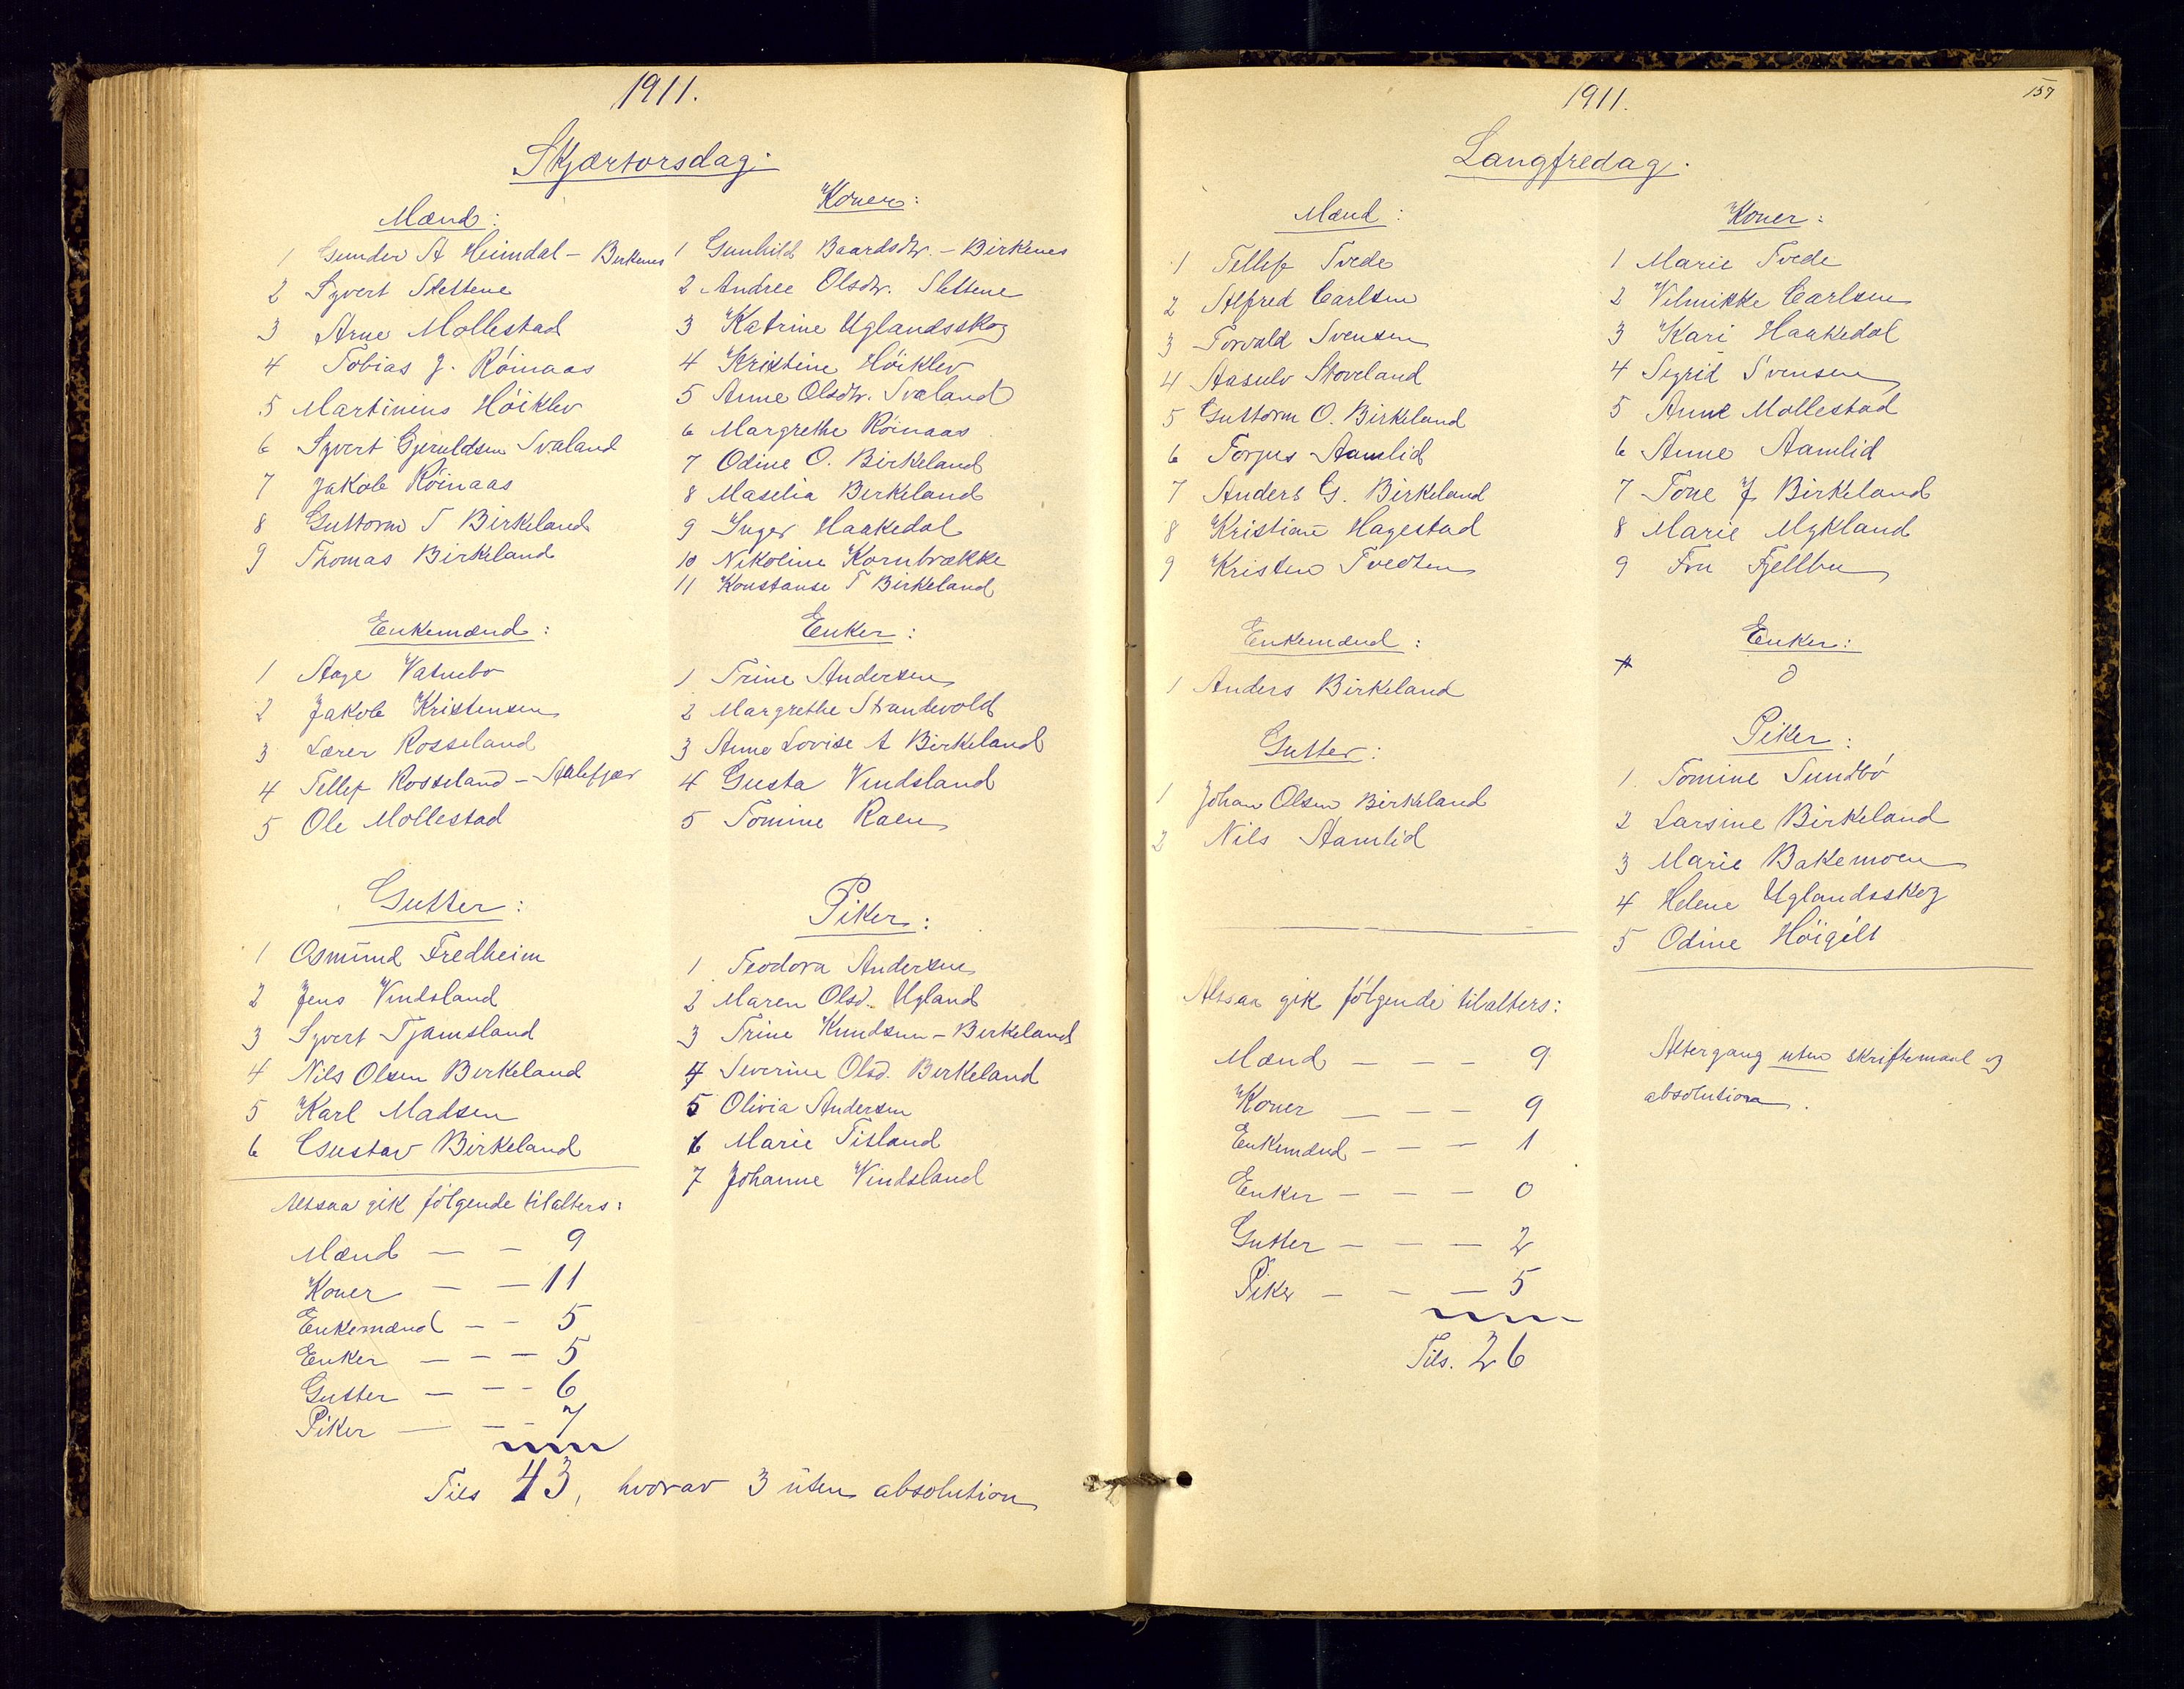 1911.
Skjærtorsdag:
Mænd:
1 Gunder A Heimdal - Birkenes
2 Syvert Slettene
3 Arne Mollestad
4 Tobias J. Röinaas
5 Martinius Höiklev
6 Syvert Gjeruldsen Svaland
7 Jakob Röinaas
8 Guttorm T Birkeland
9 Thomas Birkeland
Koner:
1 Gunhild Baardsdtr. - Birkenes
2 Andree Olsdtr. Slettene
3 Katrine Uglandsskog
4 Kristine Höiklev
5 Anne Olsdtr. Svaland
6 Margrethe Röinaas
7 Odine O. Birkeland
8 Maselia Birkeland
9 Inger Haakedal
10 Nikoline Kornbrække
11 Konstanse T Birkeland
Enkemænd:
1 Aage Vatnebo
2 Jakob Kristensen
3 Lærer Rosseland
4 Tellef Rosseland -
5 Ole Mollestad
Enker:
1 Trine Andersen
2 Margrethe Strandevold
3 Anne Lovise A Birkeland
4 Gusta Vindsland
5 Tomine Raen
Gutter:
1 Osmund Fredheim
2 Jens Vindsland
3 Syvert Tjamsland
4 Nils Olsen Birkeland
5 Karl Madsen
6 Gustav Birkeland
Piker:
1 Teodora Andersen
2 Maren Olsd. Ugland
3 Trine Knudsen - Birkeland
4 Severine Olsd. Birkeland
5 Olivia Andersen
6 Marie Tisland
7 Johanne Vindsland
Altsaa gik fölgende tilalters:
Mænd — — 9
Koner — — 11
Enkemænd — — 5
Enker — — — 5
Gutter — — — 6
Piker — — — 7
Tils 43, hvorav 3 uten absolution
157
1911.
Langfredag.
Mænd:
1 Tellef Tvede
2 Alfred Carlsen
3 Torvald Svensen
4 Aasulv Stoveland
5 Guttorm O. Birkeland
6 Torjus Aamlid
7 Anders G. Birkeland
8 Kristian Hagestad
9 Kristen Tvedten
Koner:
1 Marie Tvede
2 Vilmikke Carlsen
3 Kari Haakedal
4 Sigrid Svensen
5 Anne Mollestad
6 Anne Aamlid
7 Tone J Birkeland
8 Marie Mykland
9 Fru Fjellbu
Enkemænd:
1 Anders Birkeland
Enker:
0
Gutter:
1 Johan Olsen Birkeland
2 Nils Aamlid
Piker:
1. Tomine Sundbö
2 Larsine Birkeland
3 Marie Bakemoen
4 Helene Uglandsskog
5 Odine Höigilt
Altsaa gik fölgende tilalters:
Mænd — — — 9
Koner — — — 9
Enkemænd — — — 1
Enker — — — 0
Gutter — — — 2
Piker — — — 5
Tils. 26
Altergang uten skriftemaal og
absolution.